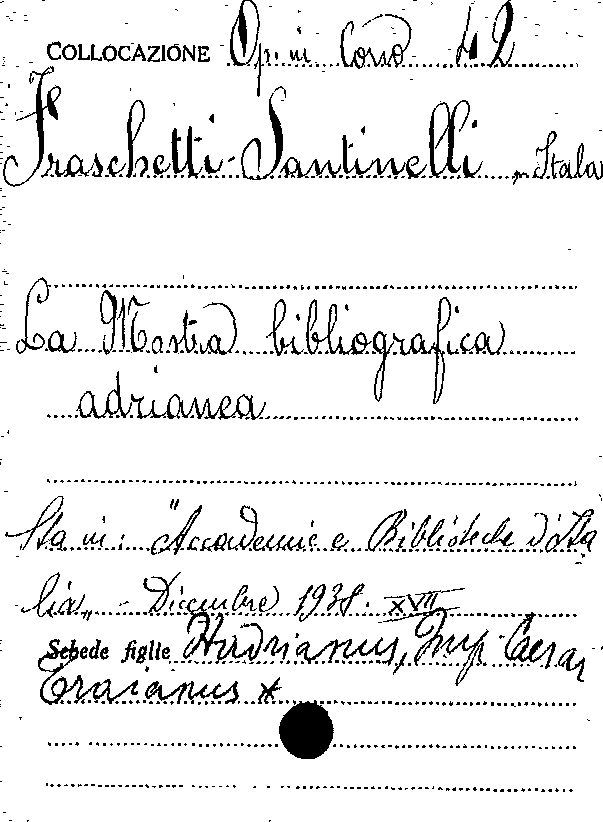 COLLOCAZIONE Op. in Corso 42
Fraschetti-Santinelli, Itala
La Mostra bibliografica
adrianea
Sta in: "Accademie e Biblioteche d'Ita
lia" - Dicembre 1938. XVII
Schede figlie Hadrianus, Imp. Caesar
Traianus *